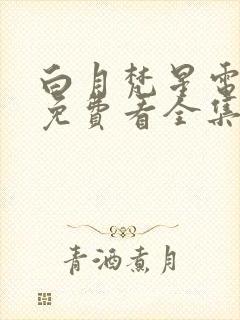 白月梵星电
免費看全集
青酒煮月